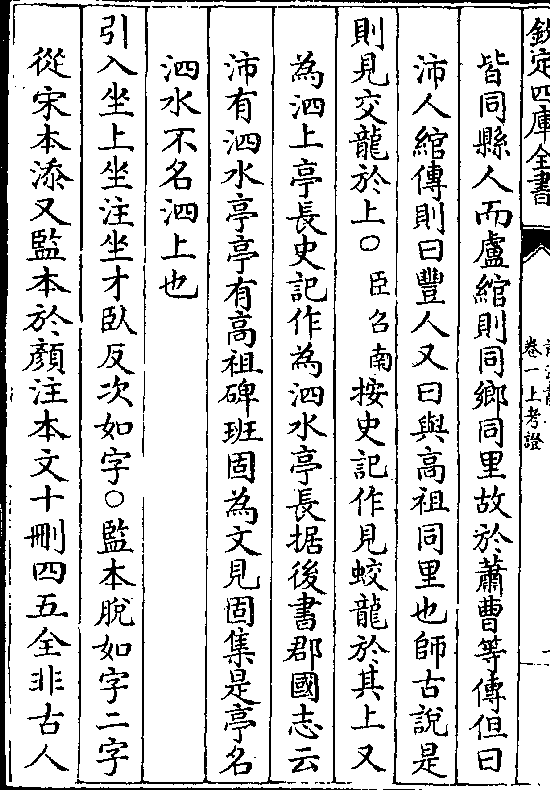 欽定四庫全書
卷一上考證
皆同縣人而盧綰則同鄉同里故於蕭曹等傳但曰
沛人綰傳則曰豐人又曰與高祖同里也師古說是
則見交龍於上○臣召南按史記作見蛟龍於其上又
為泗上亭長史記作為泗水亭長据後書郡國志云
沛有泗水亭亭有高祖碑班固為文見固集是亭名
泗水不名泗上也
引入坐上坐注坐才臥反次如字○監本脫如字二字
從宋本添又監本於顏注本文十刪四五全非古人